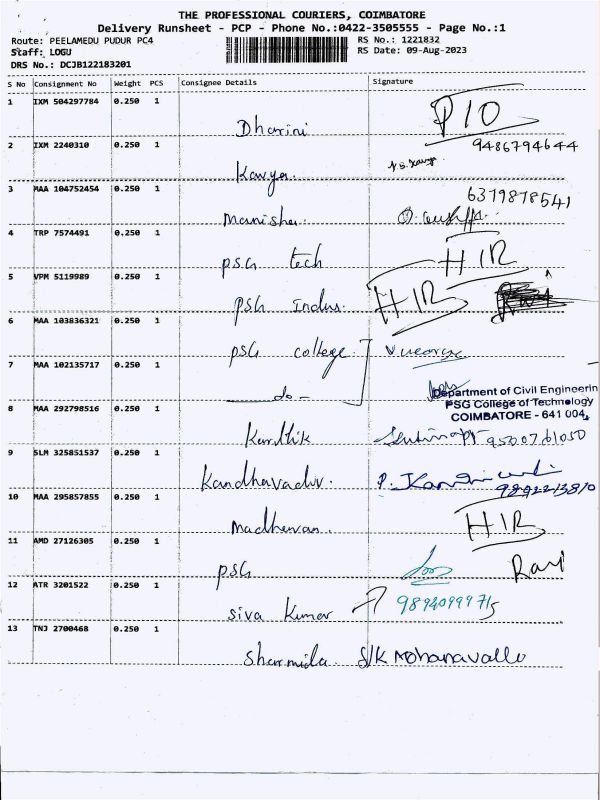 THE PROFESSIONAL COURIERS, COIMBATORE
Delivery Runsheet - PCP - Phone No.:0422-3505555 - Page No.:1
Route: PEELAMEDU PUDUR PC4 RS No.: 1221832
Staff: LOGU RS Date: 09-Aug-2023
DRS No.: DCJB122183201
S No Consignment No Weight PCS Consignee Details Signature
1 IXM 504297784 0.250 1
Dharini P/O
2 IXM 2240310 0.250 1 9486794644
Kavya.
3 MAA 104752454 0.250 1 6379878541
Manisha
4 TRP 7574491 0.250 1
PSG tech H/R
5 VPM 5119989 0.250 1
PSG Indus. H/R
6 MAA 103836321 0.250 1
PSG college
7 MAA 102135717 0.250 1
-do-
Department of Civil Engineerin
PSG College of Technology
COIMBATORE - 641 004,
8 MAA 292798516 0.250 1
Karthik 9500761050
9 SLM 325851537 0.250 1
Kandhavadiv. P.
10 MAA 295857855 0.250 1
Madhavan. H/R
11 AMD 27126305 0.250 1
PSG Ravi
12 ATR 3201522 0.250 1
Siva Kumar
13 TNJ 2700468 0.250 1
Sharmida. S/K Mohanavalli